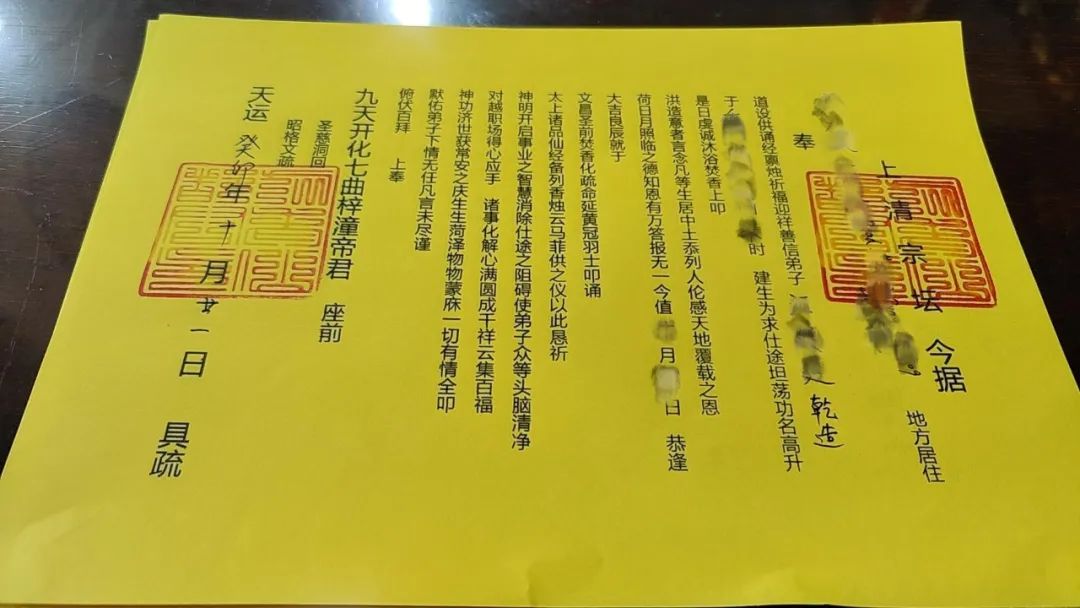 上清宗坛 今据
地方居住
奉
道设供诵经禀烛祈福迎祥善信弟子 乾造
于 时 建生为求仕途坦荡功名高升
是日虔诚沐浴焚香上叩
洪造意者言念凡等生居中土忝列人伦感天地覆载之恩
荷日月照临之德知恩有万答报无一今值 月 日 恭逢
大吉良辰就于
文昌圣前焚香化疏命延黄冠羽士叩诵
太上诸品仙经备列香烛云马菲供之仪以此恳祈
神明开启事业之智慧消除仕途之阻碍使弟子众等头脑清净
对越职场得心应手 诸事化解心满圆成千祥云集百福
神功济世获常安之庆生生荷泽物物蒙庥一切有情全叩
默佑弟子下情无任凡言未尽谨
俯伏百拜 上奉
九天开化七曲梓潼帝君 座前
圣慈洞回
昭格文疏
天运 癸卯年 十一月 廿一日 具疏